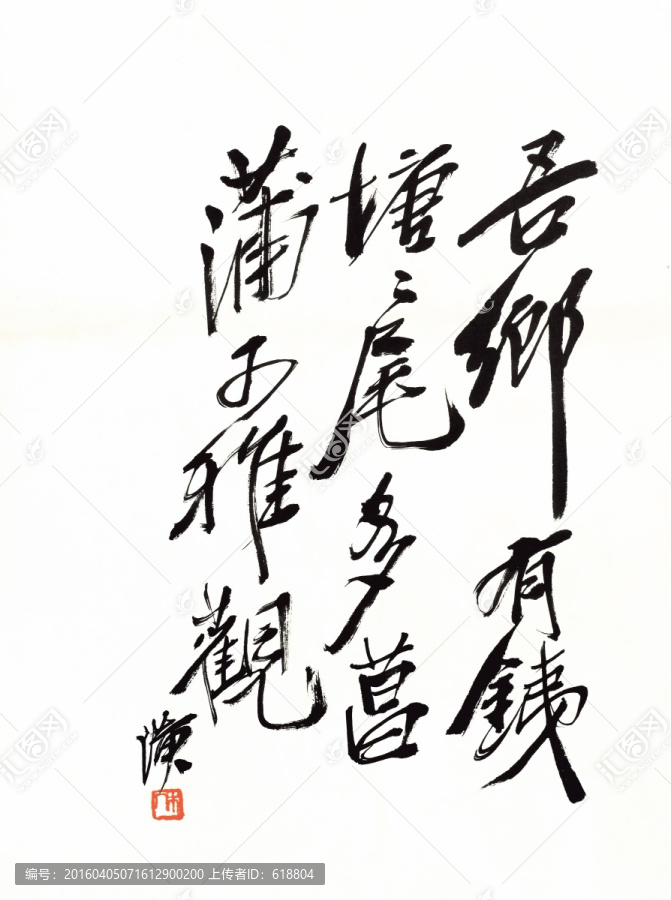 吾鄉有銕
塘〻尾多菖
蒲雅觀
璜
木人
汇图网
编号：20160405071612900200 上传者ID：618804